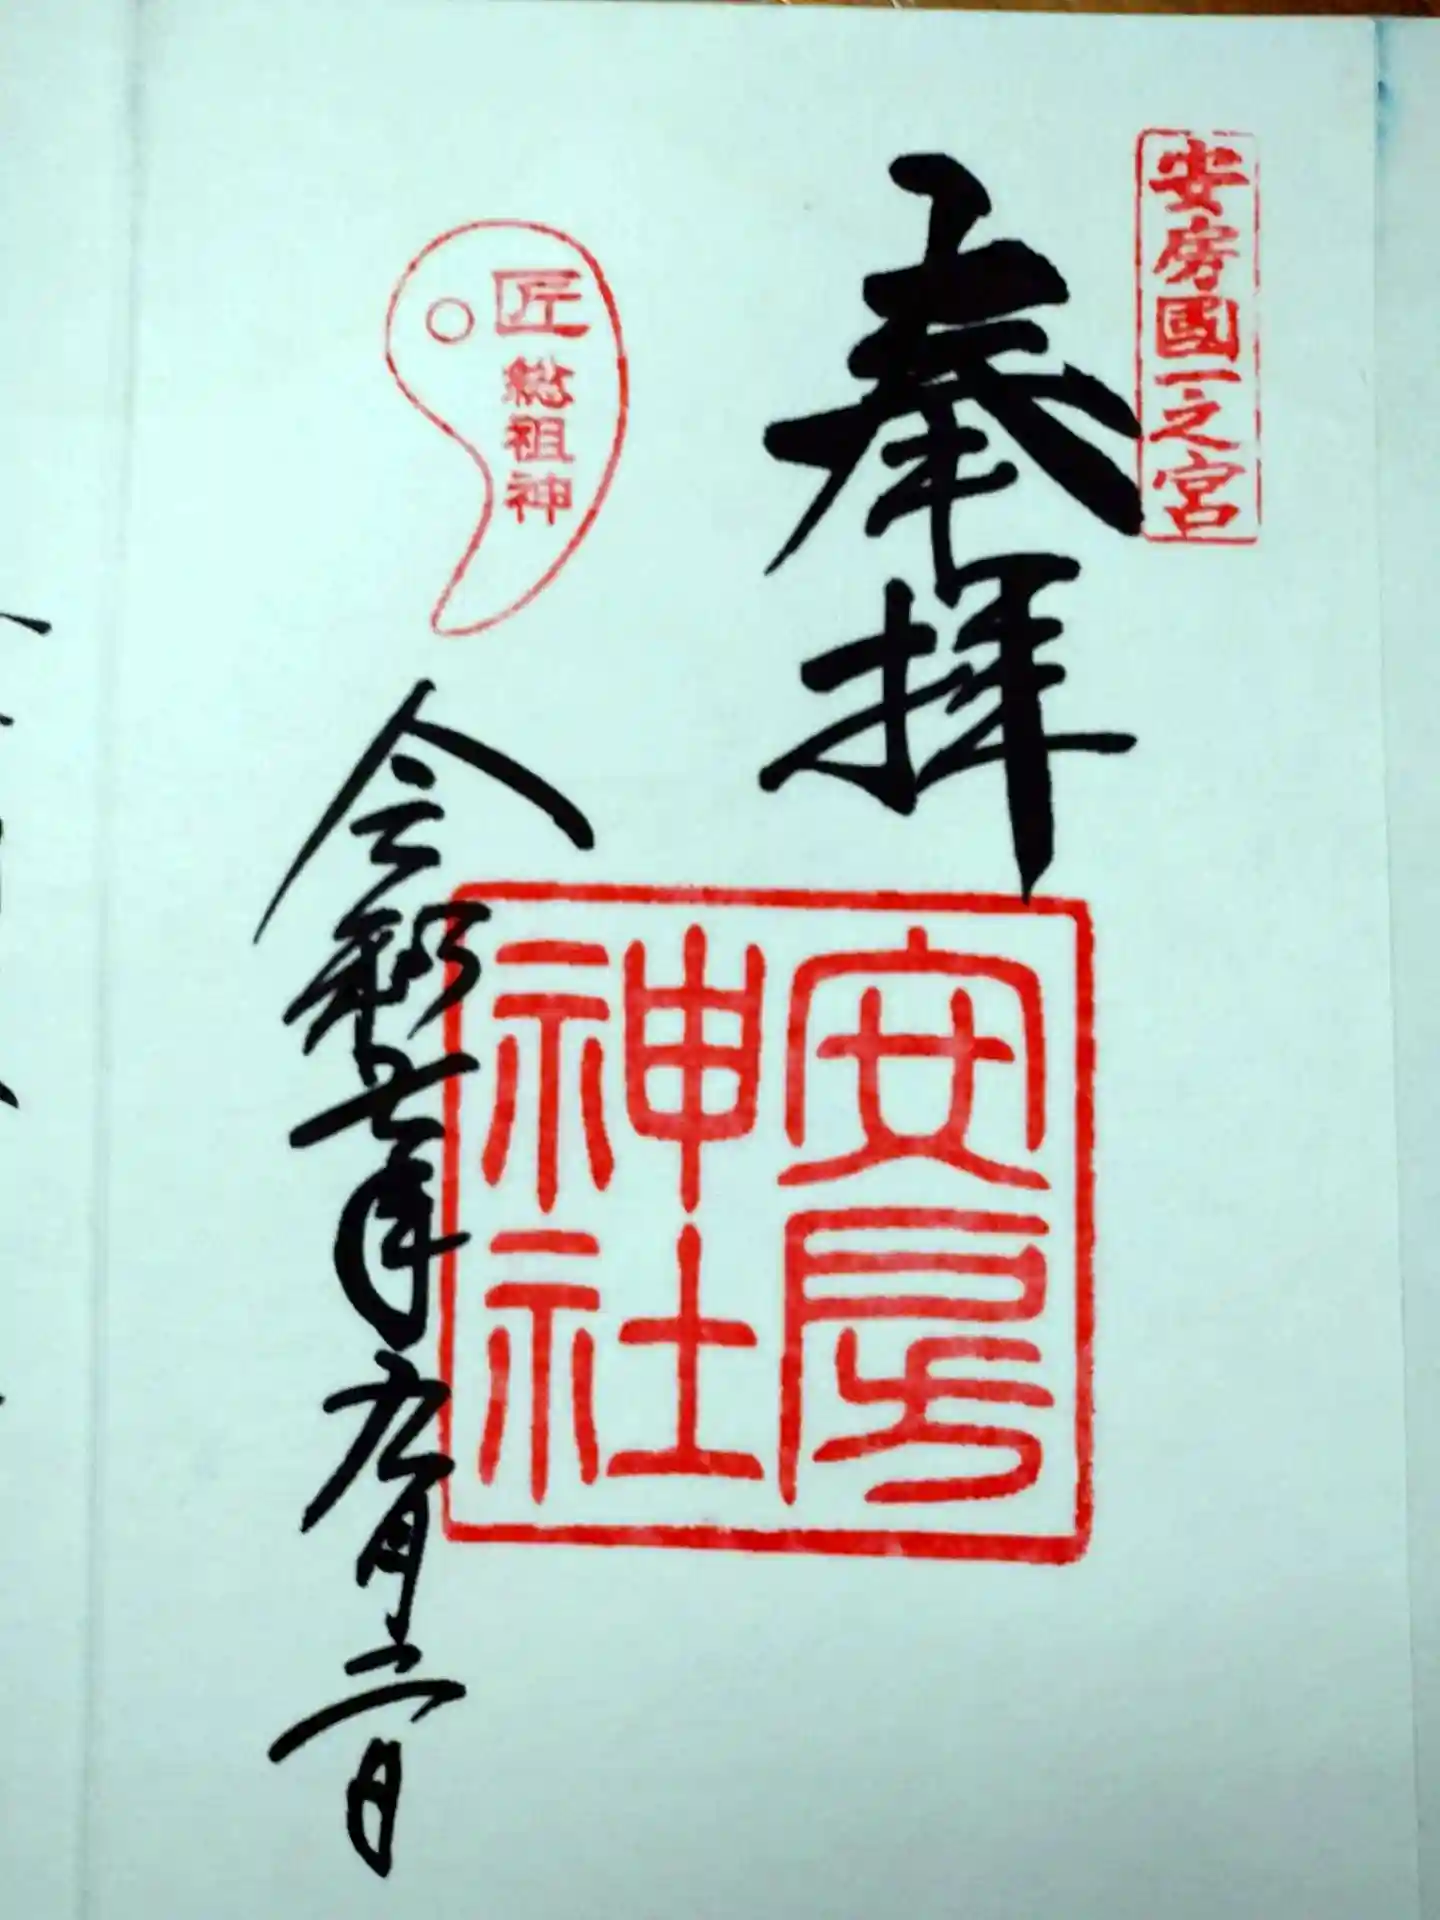 安房國一之宮
奉拝
安房
神社
匠
総祖神
令和七年九月二日